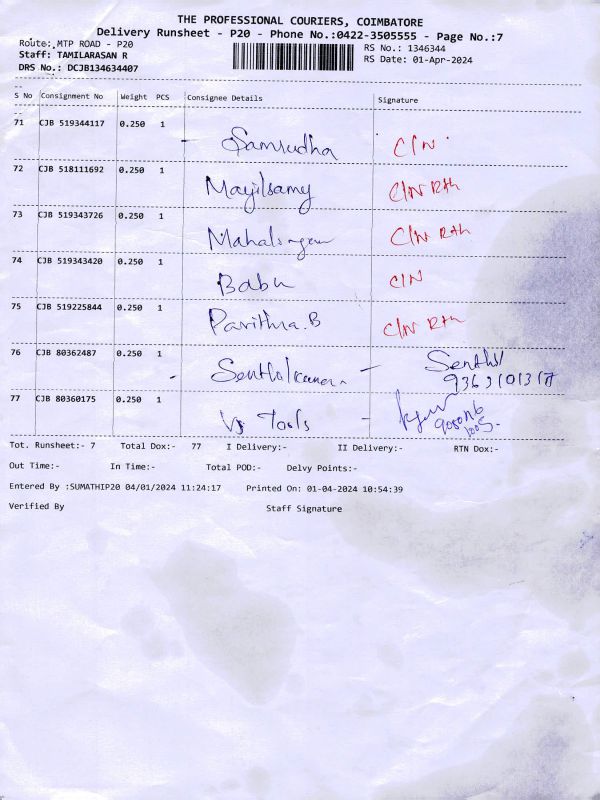 THE PROFESSIONAL COURIERS, COIMBATORE
Delivery Runsheet - P20 - Phone No.:0422-3505555 - Page No.:7
Route: MTP ROAD - P20
RS No.: 1346344
Staff: TAMILARASAN R
RS Date: 01-Apr-2024
DRS No.: DCJB134634407
S No Consignment No Weight PCS Consignee Details Signature
71 CJB 519344117 0.250 1 Samrudha C/N
72 CJB 518111692 0.250 1 Mayilsamy C/N Rth
73 CJB 519343726 0.250 1 C/N Rth
74 CJB 519343420 0.250 1 Babu C/N
75 CJB 519225844 0.250 1 Pavithra.B C/N Rth
76 CJB 80362487 0.250 1 Senthil
77 CJB 80360175 0.250 1 Vs Tools
Tot. Runsheet:- 7 Total Dox:- 77 I Delivery:- II Delivery:- RTN Dox:-
Out Time:- In Time:- Total POD:- Delvy Points:-
Entered By :SUMATHIP20 04/01/2024 11:24:17 Printed On: 01-04-2024 10:54:39
Verified By Staff Signature